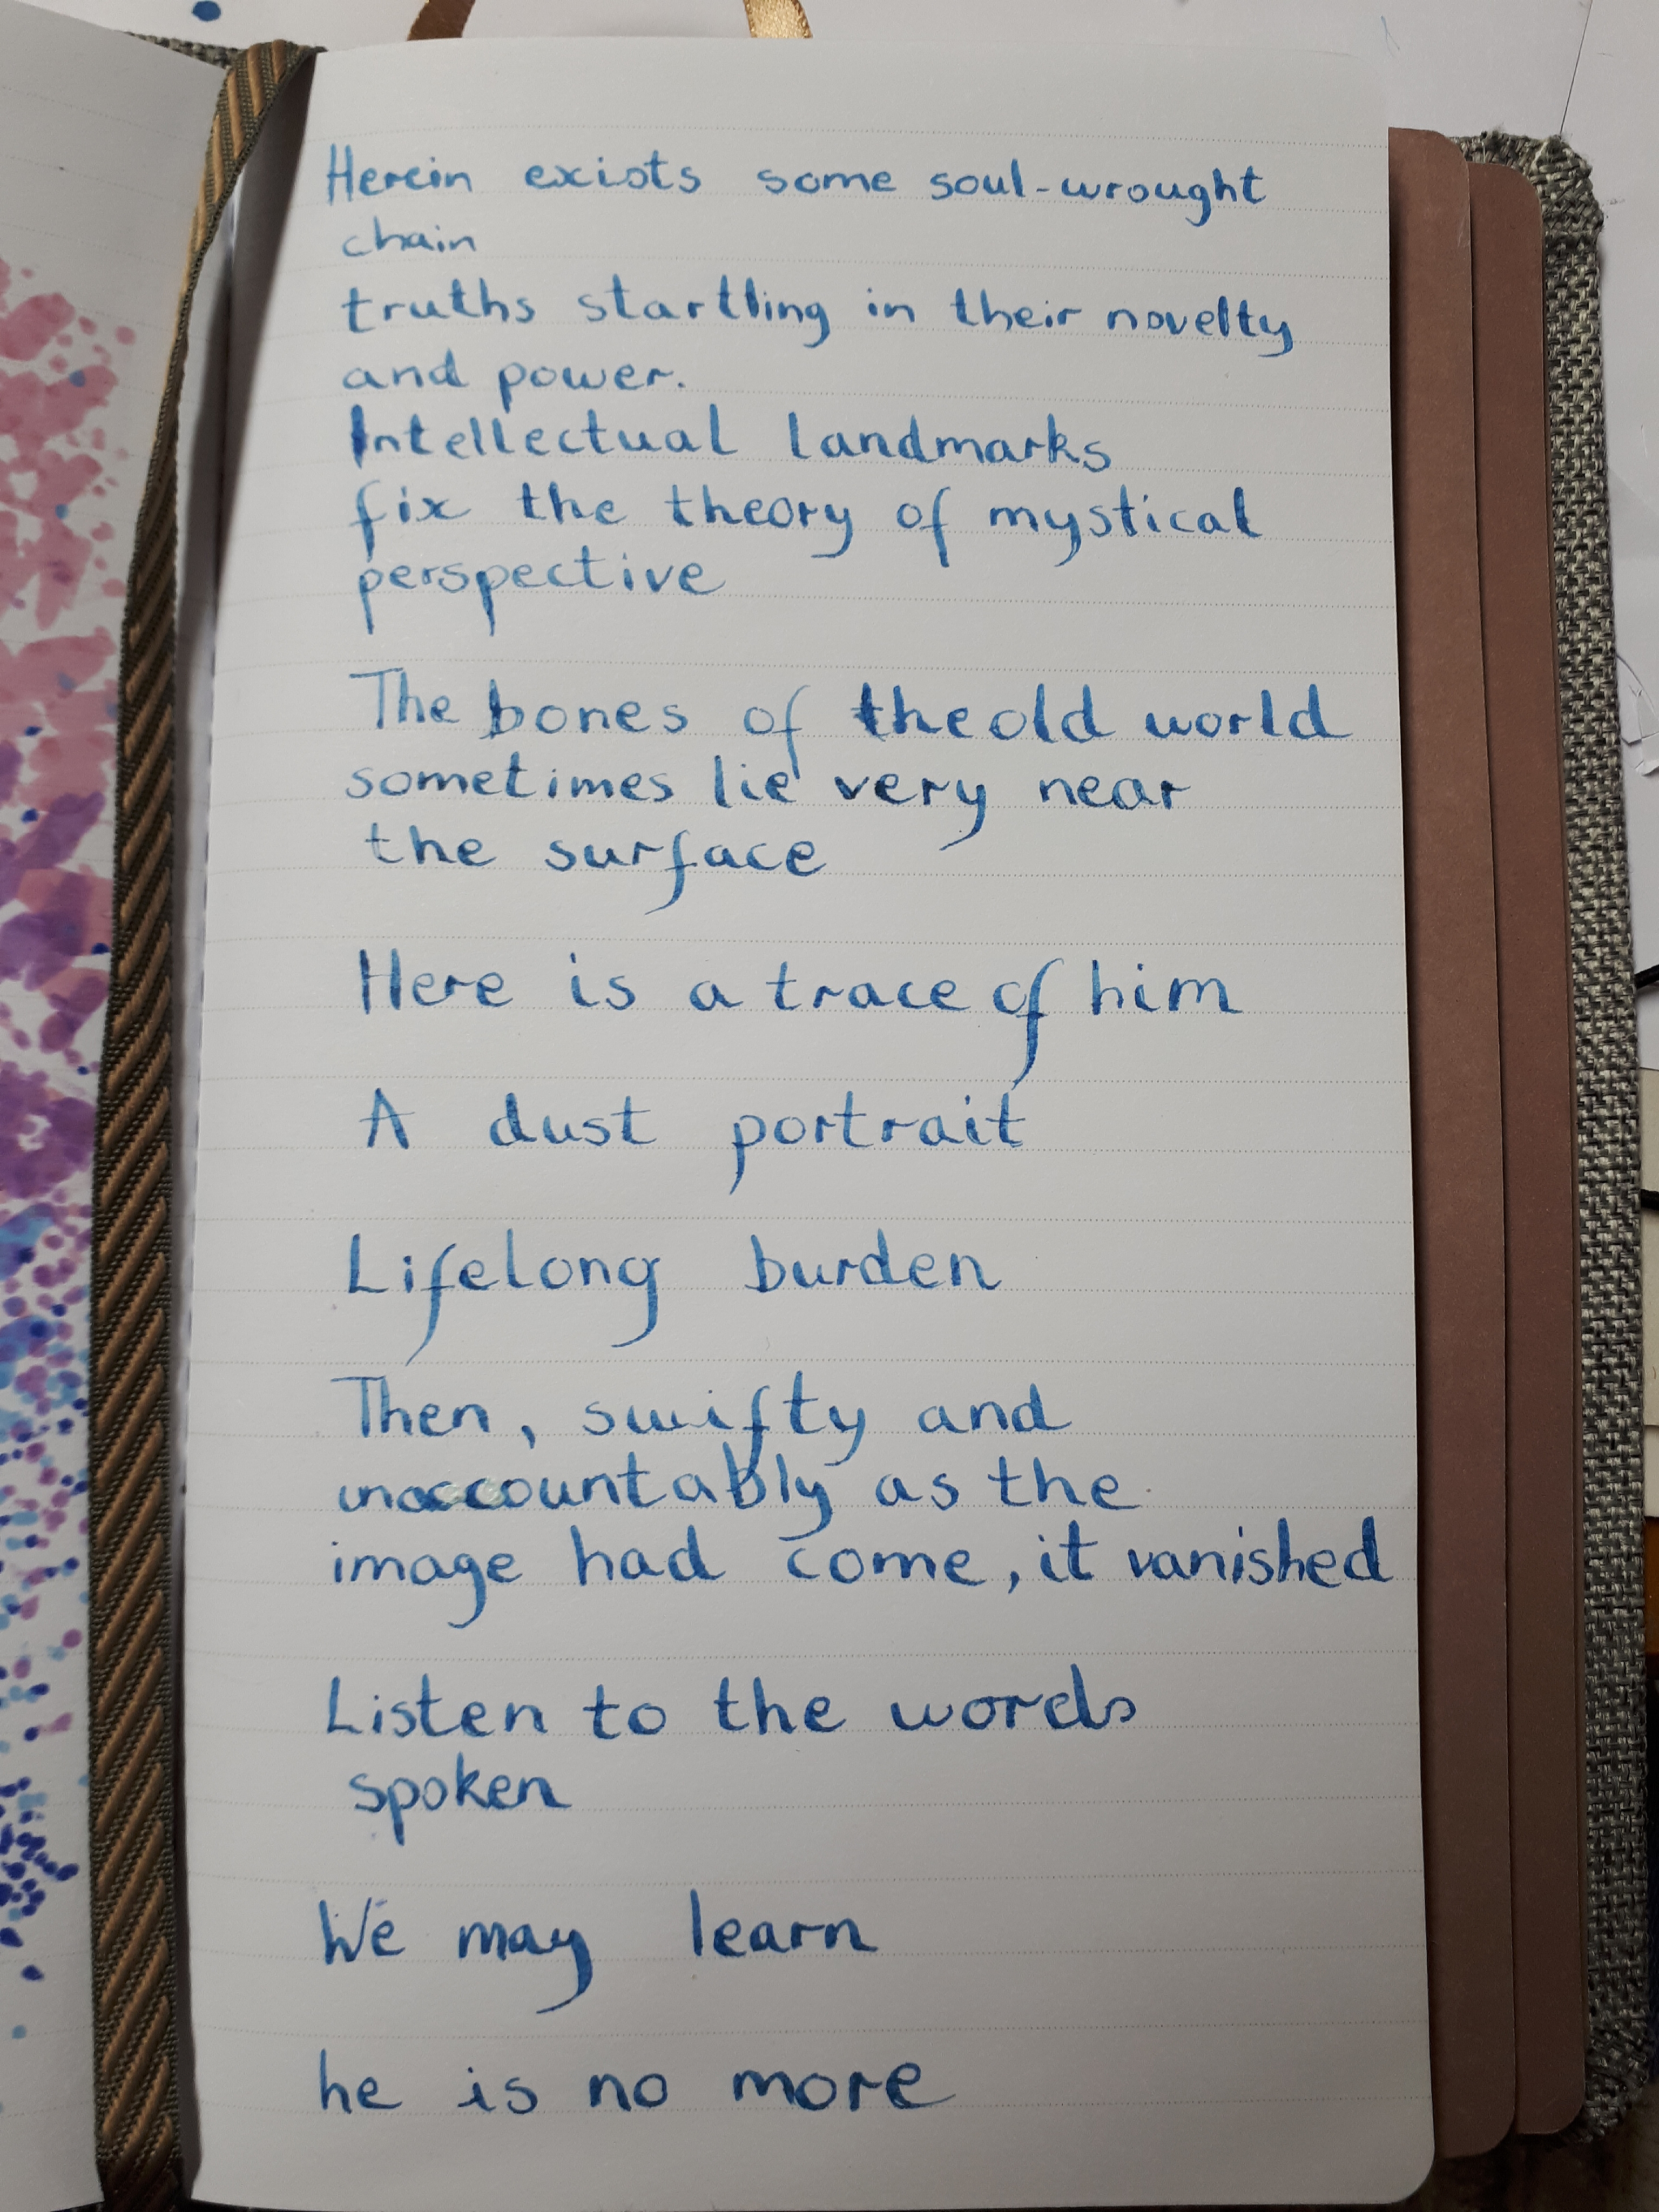 Herein exists some soul-wrought
chain
truths startling in their novelty
and power.
Intellectual landmarks
fix the theory of mystical
perspective
The bones of the old world
sometimes lie very near
the surface
Here is a trace of him
A dust portrait
Lifelong burden
Then, swifty and
unaccountably as the
image had come, it vanished
Listen to the words
spoken
We may learn
he is no more